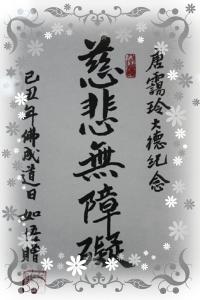 唐靄玲大德紀念
慈悲無障礙
己丑年佛成道日 如悟贈